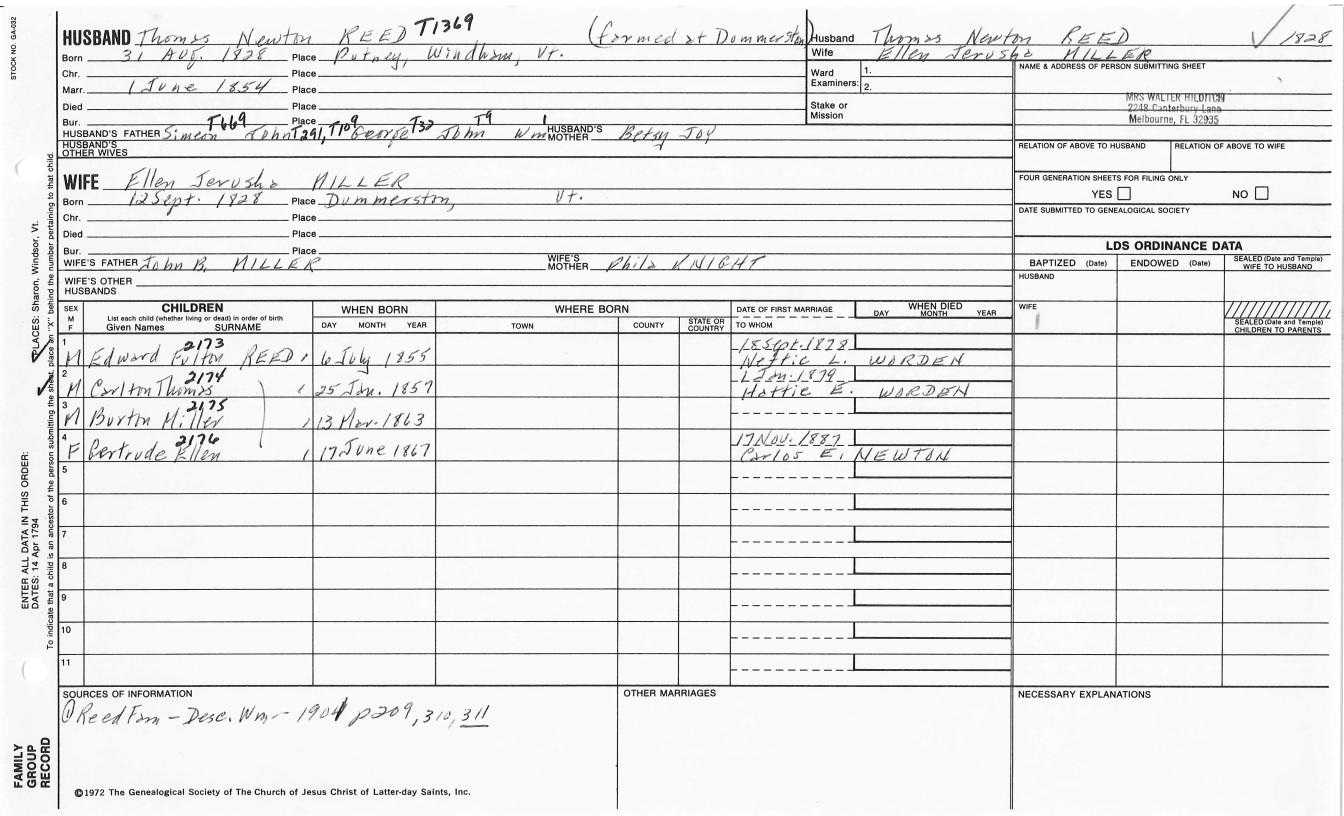 STOCK NO. GA-032
HUSBAND Thomas Newton REED T1369 (farmed at Dummerston)
Born 31 Aug. 1828 Place Putney, Windham, Vt.
Chr. Place
Marr. 1 June 1854 Place
Died Place
Bur. Place
HUSBAND'S FATHER Simeon T669 John T291, T109 George T32 John T9 Wm 1 HUSBAND'S MOTHER Betsy JOY
HUSBAND'S OTHER WIVES
Husband Thomas Newton REED 1828
Wife Ellen Jerusha MILLER
Ward 1.
Examiners: 2.
Stake or
Mission
NAME & ADDRESS OF PERSON SUBMITTING SHEET
MRS WALTER HILDITCH
2248 Canterbury Lane
Melbourne, FL 32935
RELATION OF ABOVE TO HUSBAND RELATION OF ABOVE TO WIFE
FOUR GENERATION SHEETS FOR FILING ONLY
YES NO
DATE SUBMITTED TO GENEALOGICAL SOCIETY
WIFE Ellen Jerusha MILLER
Born 12 Sept. 1828 Place Dummerston, Vt.
Chr. Place
Died Place
Bur. Place
WIFE'S FATHER John B. MILLER WIFE'S MOTHER Phila KNIGHT
WIFE'S OTHER HUSBANDS
LDS ORDINANCE DATA
BAPTIZED (Date) ENDOWED (Date) SEALED (Date and Temple) WIFE TO HUSBAND
HUSBAND
WIFE
SEALED (Date and Temple) CHILDREN TO PARENTS
SEX M F CHILDREN WHEN BORN WHERE BORN DATE OF FIRST MARRIAGE WHEN DIED
List each child (whether living or dead) in order of birth
Given Names SURNAME DAY MONTH YEAR TOWN COUNTY STATE OR COUNTRY TO WHOM DAY MONTH YEAR
1 2173 18 Sept. 1878
M Edward Fulton REED 6 July 1855 Nettie L. WORDEN
2 2174 1 Jan. 1879
M Carlton Thomas 25 Jan. 1857 Hattie E. WORDEN
3 2175
M Burton Miller 13 Mar. 1863
4 2176 17 Nov. 1887
F Gertrude Ellen 17 June 1867 Carlos E. NEWTON
5
6
7
8
9
10
11
SOURCES OF INFORMATION
① Reed Fam - Desc. Wm - 1901 p209, 310, 311
OTHER MARRIAGES
NECESSARY EXPLANATIONS
©1972 The Genealogical Society of The Church of Jesus Christ of Latter-day Saints, Inc.
FAMILY
GROUP
RECORD
ENTER ALL DATA IN THIS ORDER:
DATES: 14 Apr 1794 PLACES: Sharon, Windsor, Vt.
To indicate that a child is an ancestor of the person submitting the sheet, place an "X" behind the number pertaining to that child.